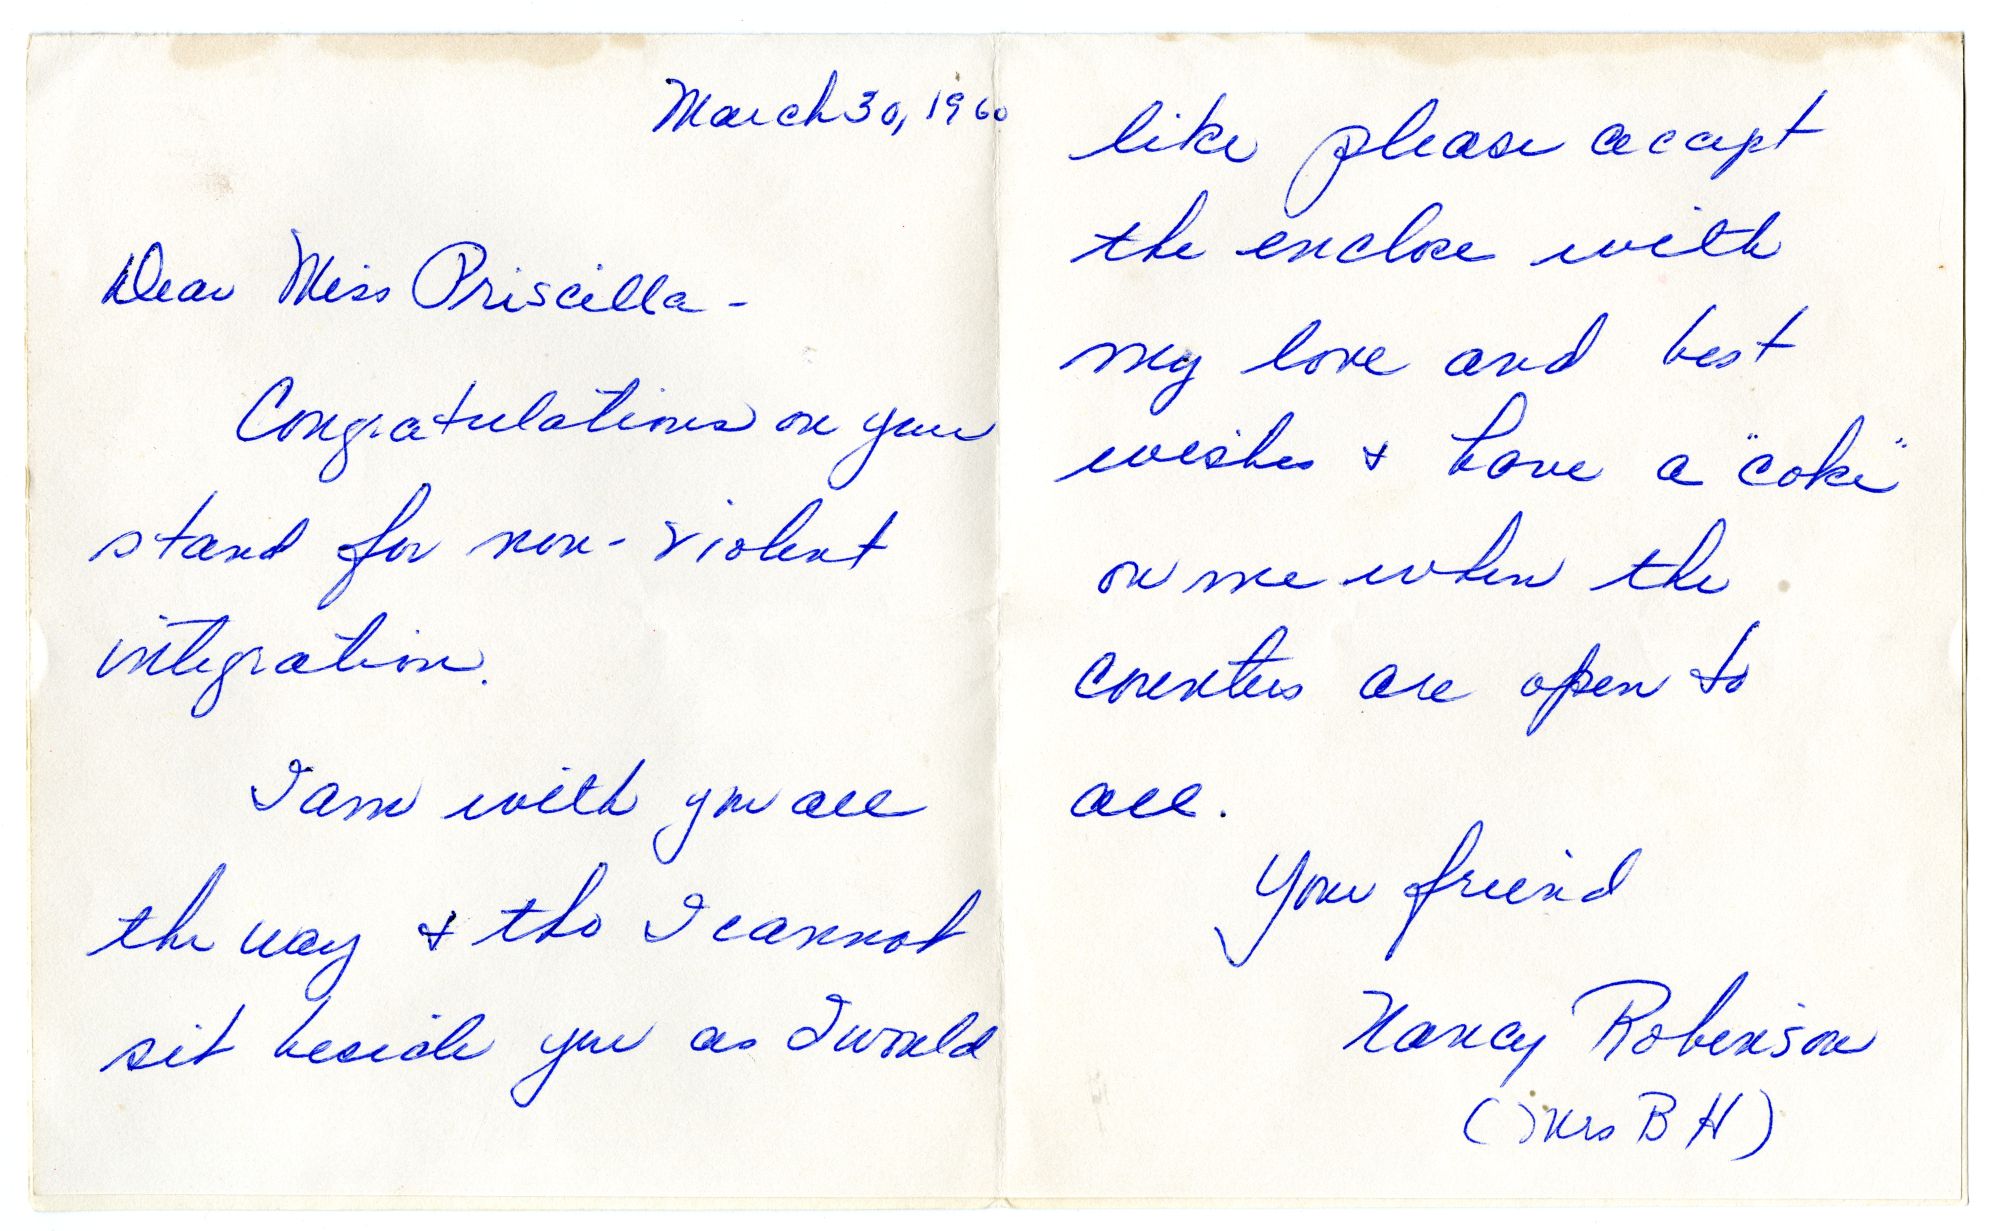 March 30, 1960
Dear Miss Priscilla -
Congratulations on your
stand for non-violent
integration.
I am with you all
the way & tho I cannot
sit beside you as I would
like please accept
the enclose with
my love and best
wishes & have a "coke"
on me when the
counters are open to
all.
Your friend
Nancy Robinson
(Mrs B H)